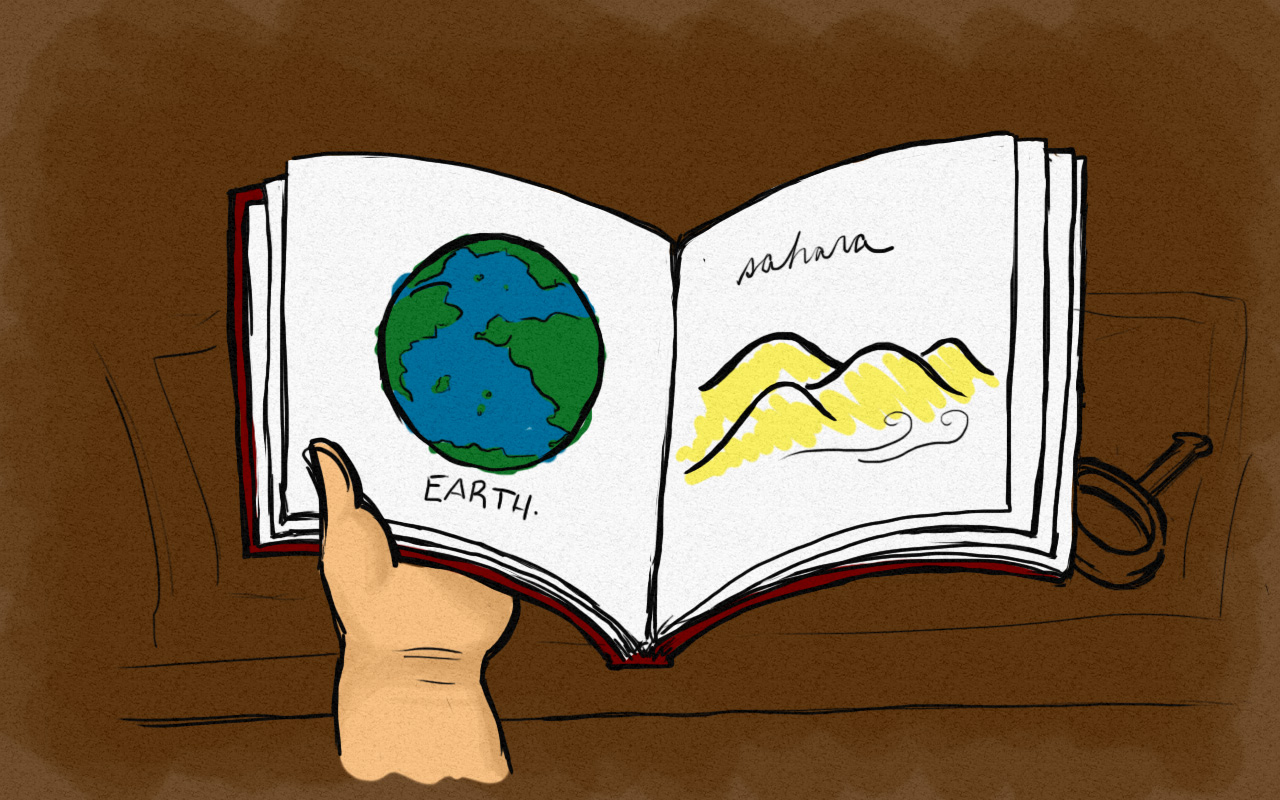 EARTH.
sahara